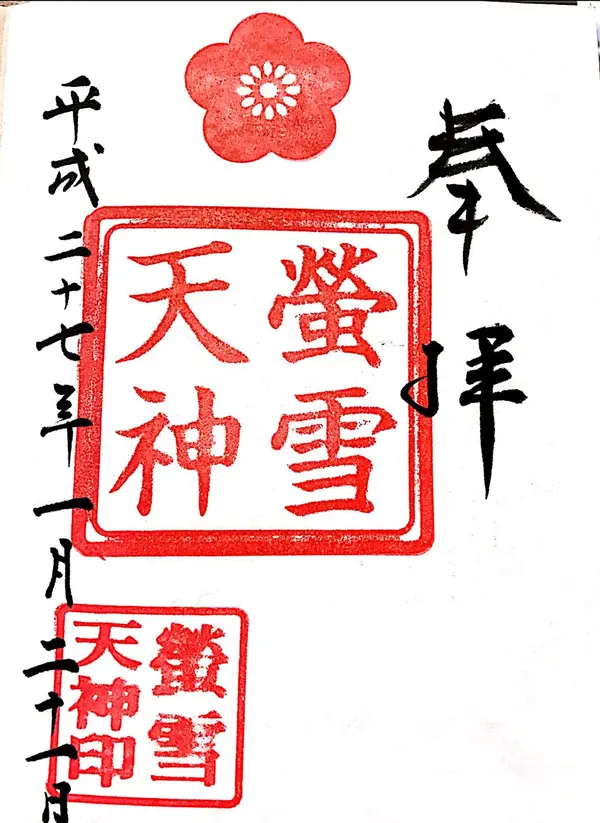 奉拝
螢雪
天神
螢雪
天神印
平成二十七年一月二十一日